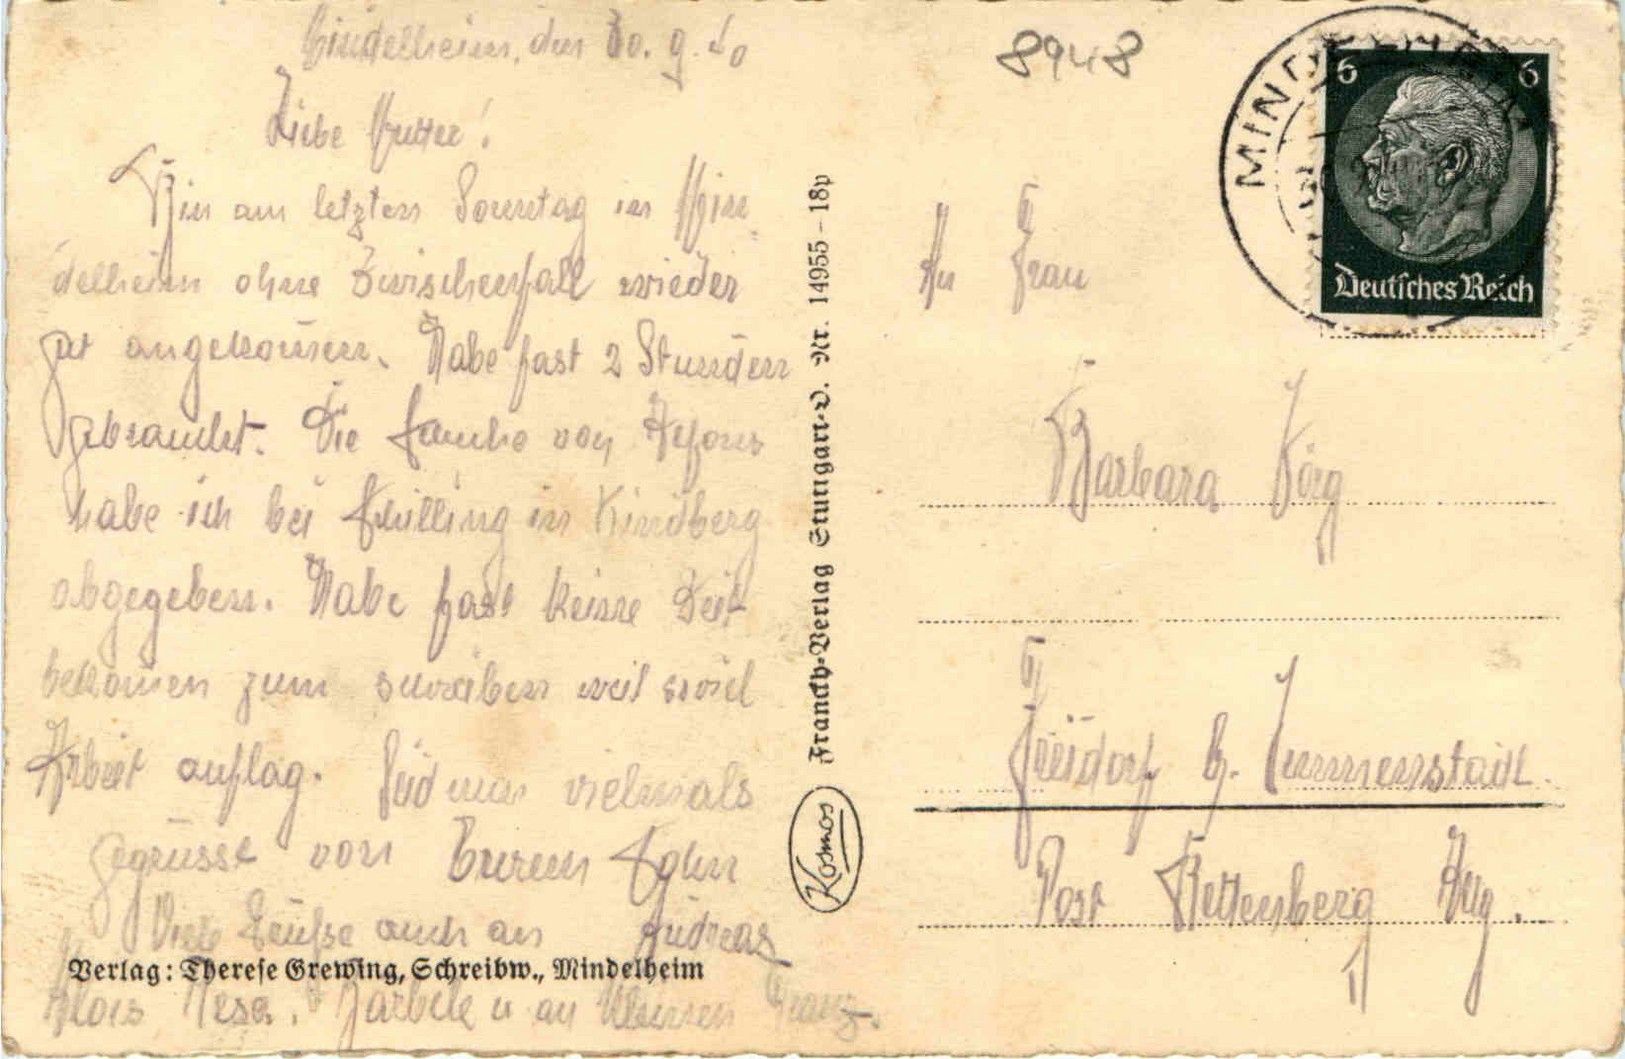 Mindelheim, den 30. 9. 40
Liebe Mutter!
Bin am letzten Sonntag in Min-
delheim ohne Zwischenfall wieder
gut angekommen. Habe fast 2 Stunden
gebraucht. Die von
habe ich bei in
abgegeben. Habe fast keine Zeit
bekommen zum schreiben weil soviel
Arbeit auflag. Seid nun vielmals
gegrüsst von Eurem Sohn
Andreas
Viele Grüsse auch an
Alois Resa. u an kleinen Franz.
Verlag: Therese Grewing, Schreibw., Mindelheim
Franckh-Verlag Stuttgart-O. Nr. 14955 – 18p
Kosmos
8948
MINDELHEIM
6 6
Deutsches Reich
An Frau
Barbara Jörg
Freidorf b. Immenstadt.
Post Rettenberg Allg.